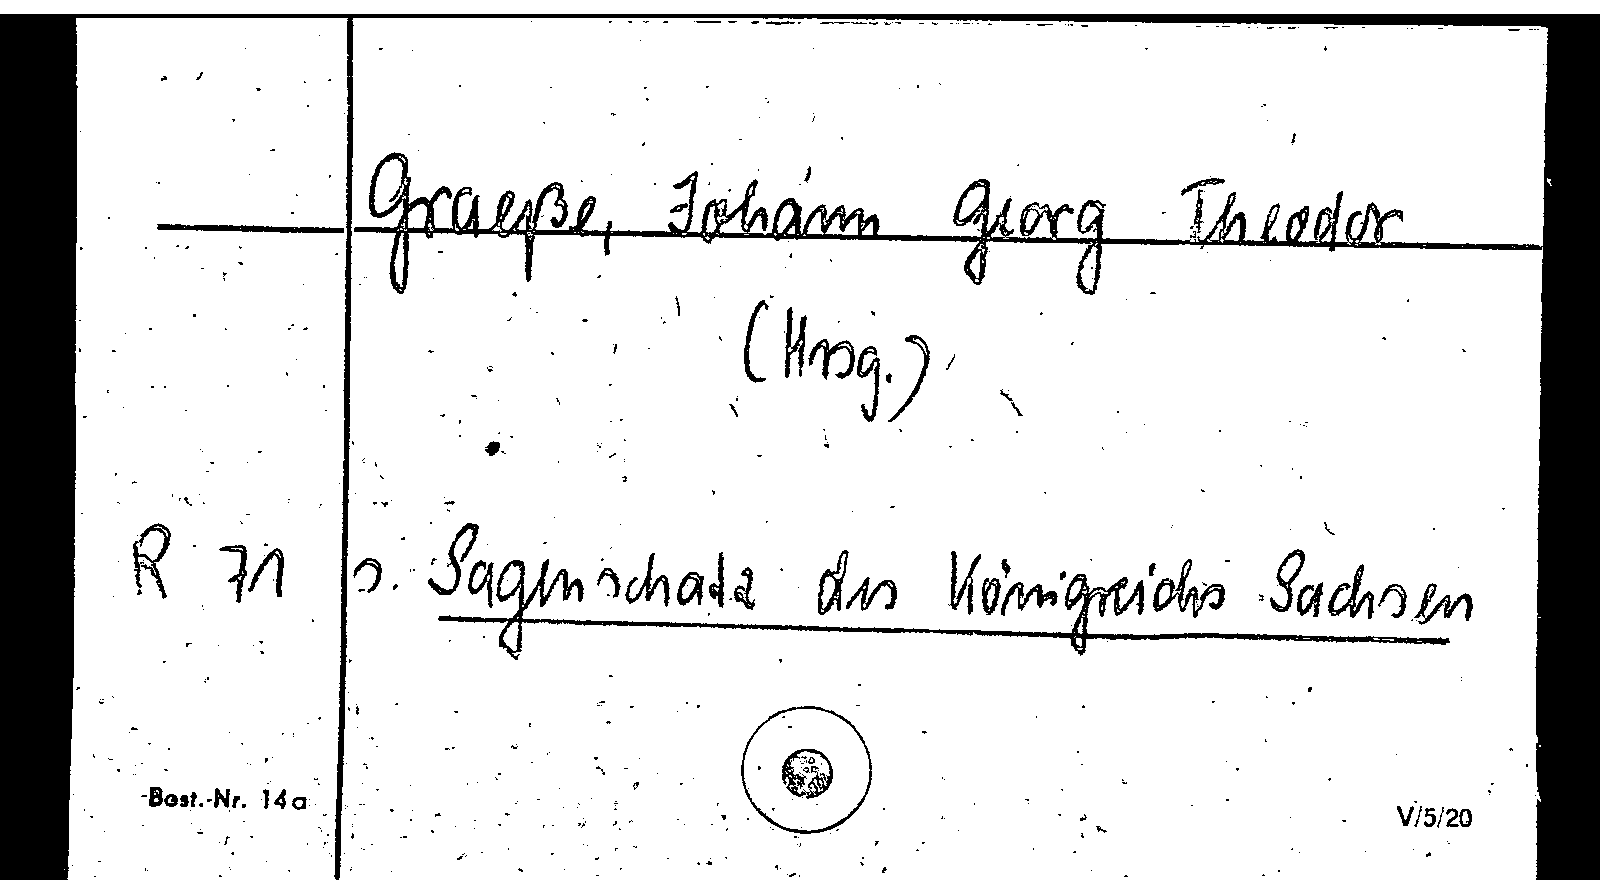 Graeße, Johann Georg Theodor
(Hrsg.)
R 71 s. Sagenschatz des Königreichs Sachsen
Best.-Nr. 14a
V/5/20